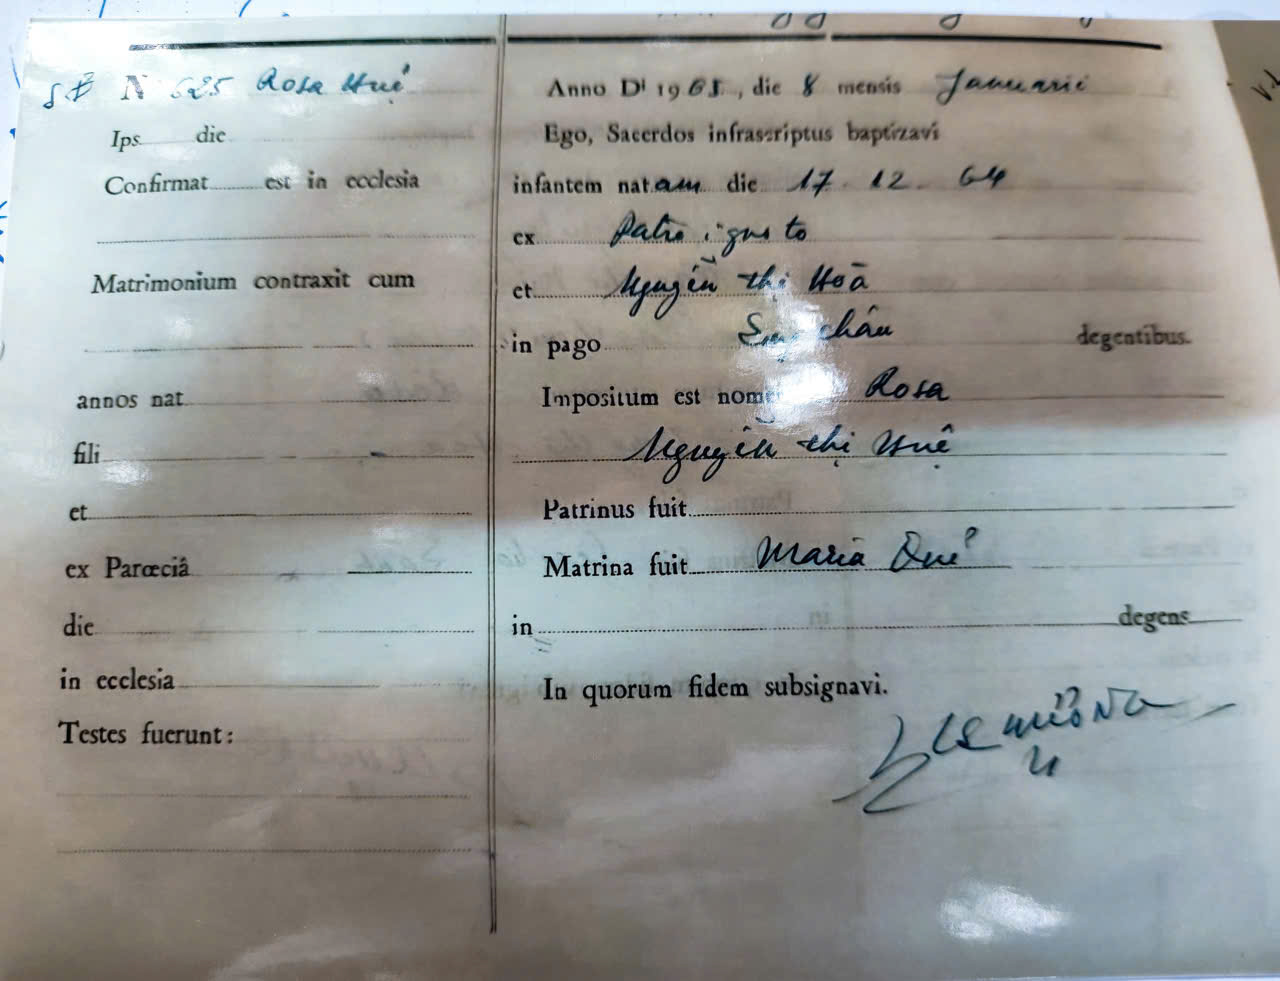 N 625 Rosa Huệ
Ips die
Confirmat est in ecclesia
Matrimonium contraxit cum
annos nat
fili
et
ex Parœciâ
die
in ecclesia
Testes fuerunt:
Anno Dⁱ 1965, die 8 mensis Januarii
Ego, Sacerdos infrascriptus baptizavi
infantem natam die 17. 12. 64
ex Patre ignoto
et Nguyễn thị Hoà
in pago châu degentibus.
Impositum est nomen Rosa
Nguyễn thị Huệ
Patrinus fuit
Matrina fuit Maria Quế
in degens
In quorum fidem subsignavi.